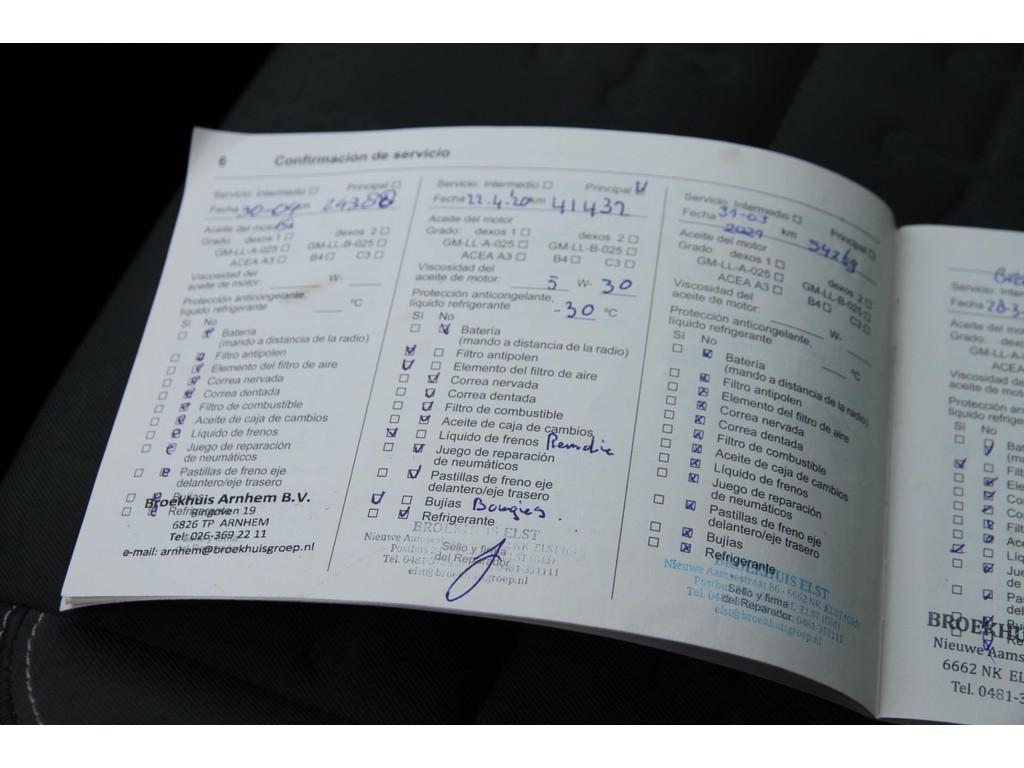 6 Confirmación de servicio
Servicio: Intermedio Principal
Fecha 30-04 km 29388
Aceite del motor
Grado: dexos 1 dexos 2
GM-LL-A-025 GM-LL-B-025
ACEA A3 B4 C3
Viscosidad del
aceite de motor: W-
Protección anticongelante,
líquido refrigerante °C
Sí No
Batería
(mando a distancia de la radio)
Filtro antipolen
Elemento del filtro de aire
Correa nervada
Correa dentada
Filtro de combustible
Aceite de caja de cambios
Líquido de frenos
Juego de reparación
de neumáticos
Pastillas de freno eje
delantero/eje trasero
Bujías
Refrigerante
Broekhuis Arnhem B.V.
6826 TP ARNHEM
Tel. 026-369 22 11
e-mail: arnhem@broekhuisgroep.nl
Servicio: Intermedio Principal
Fecha 22.4.'20 km 41437
Aceite del motor
Grado: dexos 1 dexos 2
GM-LL-A-025 GM-LL-B-025
ACEA A3 B4 C3
Viscosidad del
aceite de motor: 5 W- 30
Protección anticongelante,
líquido refrigerante -30 °C
Sí No
Batería
(mando a distancia de la radio)
Filtro antipolen
Elemento del filtro de aire
Correa nervada
Correa dentada
Filtro de combustible
Aceite de caja de cambios
Líquido de frenos
Juego de reparación
de neumáticos
Pastillas de freno eje
delantero/eje trasero
Bujías Bougies
Refrigerante
BROEKHUIS ELST
Sello y firma
del Reparador
elst@broekhuisgroep.nl
Servicio: Intermedio Principal
Fecha 31-03 2021 km 54269
Aceite del motor
Grado: dexos 1 dexos 2
GM-LL-A-025 GM-LL-B-025
ACEA A3 B4 C3
Viscosidad del
aceite de motor: W-
Protección anticongelante,
líquido refrigerante °C
Sí No
Batería
(mando a distancia de la radio)
Filtro antipolen
Elemento del filtro de aire
Correa nervada
Correa dentada
Filtro de combustible
Aceite de caja de cambios
Líquido de frenos
Juego de reparación
de neumáticos
Pastillas de freno eje
delantero/eje trasero
Bujías
Refrigerante
BROEKHUIS ELST
Nieuwe Aamsestraat 86 - 6662 NK ELST (Gld)
Sello y firma
del Reparador
elst@broekhuisgroep.nl
Servicio:
Fecha 28-3
Aceite del mo
Grado:
GM-LL-A
ACEA
Viscosidad
aceite de mo
Protección an
líquido refrige
Sí No
B
(m
Filt
Ele
Co
Co
Filt
Ace
Líq
Jue
de
Pas
del
BROEKHU
Nieuwe Aams
6662 NK EL
Tel. 0481-3